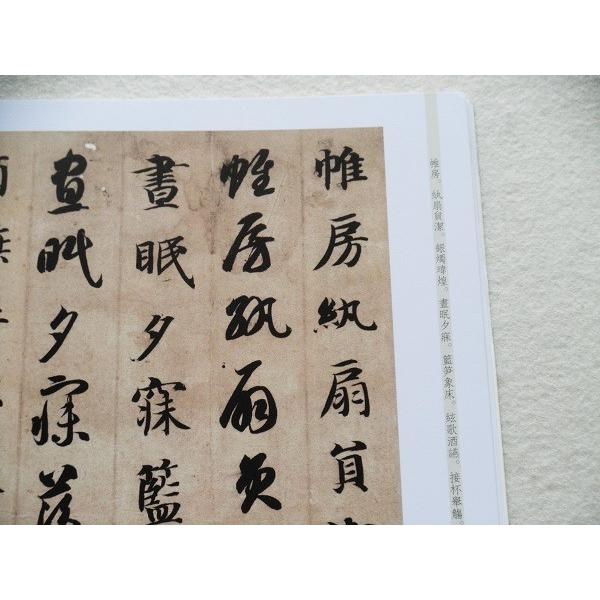 帷房。紈扇員潔。銀燭煒煌。晝眠夕寐。籃笋象床。絃歌酒讌。接杯舉觴。
帷房紈扇員
帷房紈扇員
晝眠夕寐籃
晝眠夕寐